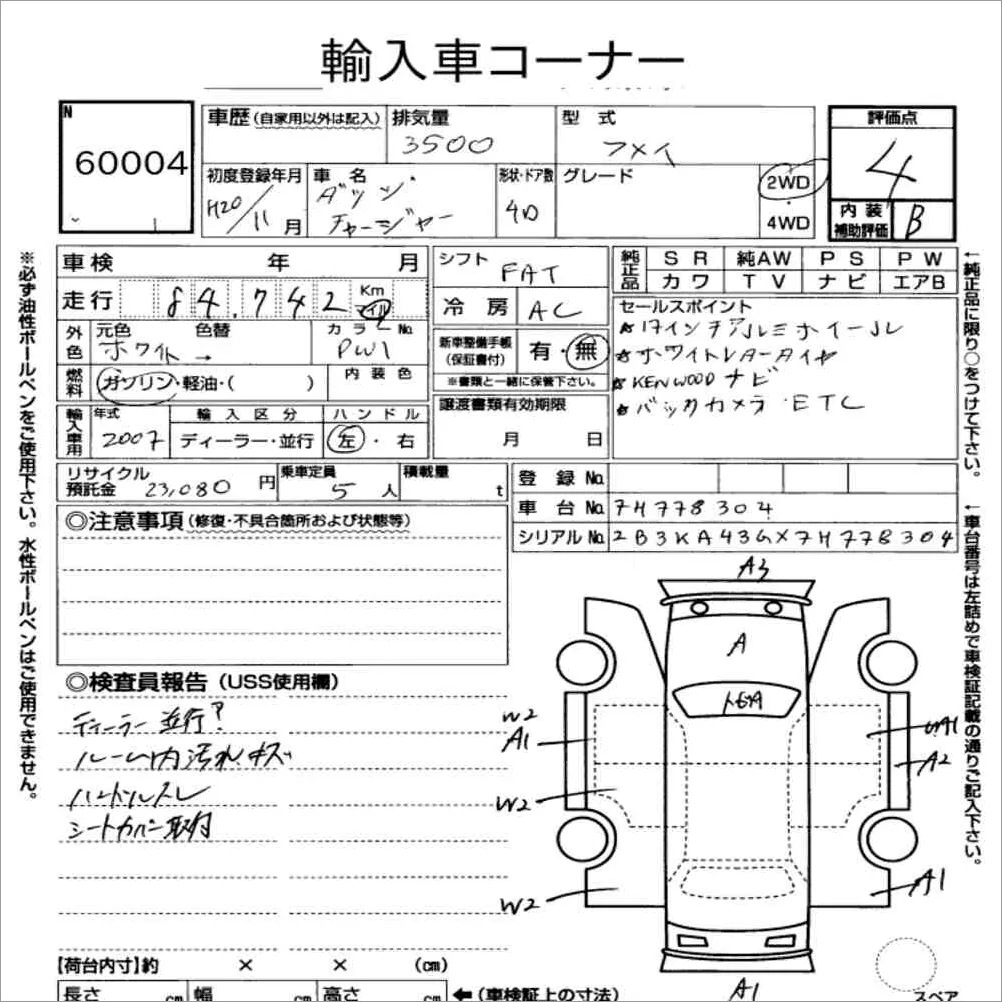 輸入車コーナー
N
60004
車歴 (自家用以外は記入)
排気量
3500
型式
フメイ
評価点
4
初度登録年月
H20/11月
車名
ダッジ・
チャージャー
形状・ドア数
4D
グレード
2WD
・
4WD
内装
補助評価
B
車検 年 月
シフト
FAT
純正品
SR 純AW PS PW
カワ TV ナビ エアB
走行 84,742 Km
マイル
冷房 AC
セールスポイント
★17インチアルミホイール
★ホワイトレタータイヤ
★KENWOODナビ
★バックカメラ・ETC
外色
元色 色替
ホワイト →
カラーNo.
PW1
新車整備手帳
(保証書付)
有・無
※書類と一緒に保管下さい。
燃料
ガソリン・軽油・( )
内装色
譲渡書類有効期限
月 日
輸入車用
年式
2007
輸入区分
ディーラー・並行
ハンドル
左・右
リサイクル
預託金 23,080 円
乗車定員
5人
積載量
t
登録No.
車台No. 7H778304
シリアルNo. 2B3KA43GX7H778304
◎注意事項 (修復・不具合箇所および状態等)
◎検査員報告 (USS使用欄)
ディーラー並行?
ルーム内汚れキズ
ハンドルスレ
シートカバー取付
A3
A
W2
A1
A1
A2
W2
W2
A1
A1
【荷台内寸】約 × × (cm)
長さ cm 幅 cm 高さ cm ←(車検証上の寸法)
スペア
※必ず油性ボールペンをご使用下さい。水性ボールペンはご使用できません。
←純正品に限り○をつけて下さい。
←車台番号は左詰めで車検証記載の通りご記入下さい。